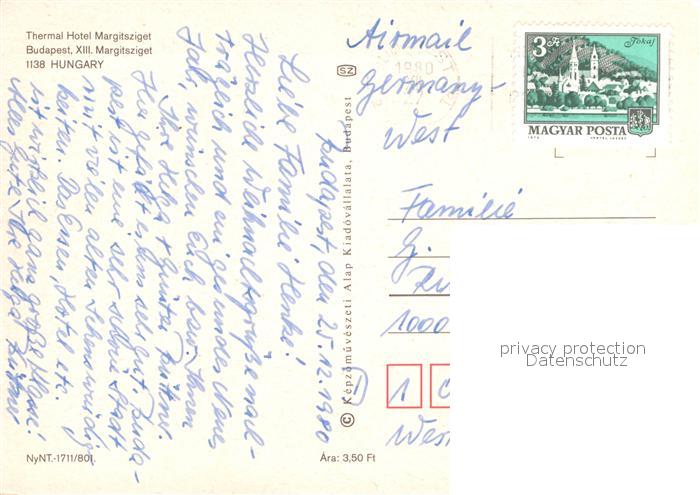 Thermal Hotel Margitsziget
Budapest, XIII. Margitsziget
1138 HUNGARY
Budapest, den 25.12.1980
Liebe Familie Henke!
Herzliche Weihnachtsgrüße nach-
träglich und ein gesundes Neues
Jahr, wünschen Euch bzw. Ihnen
Ihre Helga + Günter
Hier gefällt es ihm sehr gut. Buda-
pest ist eine sehr schöne Stadt
mit vielen alten Sehenswürdig-
keiten. Das Essen, Hotel etc.
ist wirklich ganz große Klasse!
Alles Gute Ihre Helga
NyNT.-1711/801.
Ára: 3,50 Ft
© Képzőművészeti Alap Kiadóvállalata, Budapest
SZ
1980
3 Ft
Tokaj
MAGYAR POSTA
Airmail
Germany-
West
Familie
G.
1000
1
West
privacy protection
Datenschutz